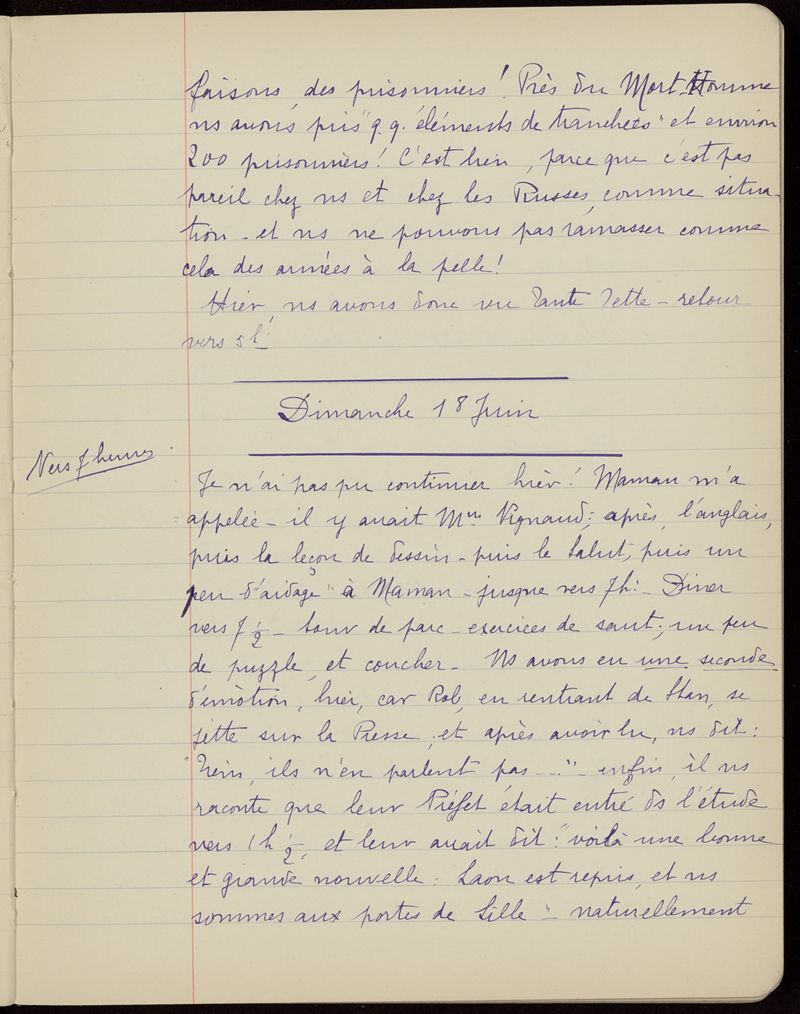 faisons, des prisonniers! Près du Mort-Homme
ns avons pris "q.q. éléments de tranchées" et environ
200 prisonniers! C'est bien, parce que c'est pas
pareil chez ns et chez les Russes, comme situa-
tion - et ns ne pouvons pas ramasser comme
cela des armées à la pelle!
Hier, ns avons donc vu Tante Zette - retour
vers 5h
Dimanche 18 Juin
Vers 7 heures.
Je n'ai pas pu continuer hier! Maman m'a
appelée - il y avait Mme Vignaud; après, l'anglais,
puis la leçon de dessin - puis le Salut, puis un
peu d'"aidage" à Maman - jusque vers 7h. - Diner
vers 7 1/2 - tour de parc - exercices de saut; un peu
de puzzle, et coucher - Ns avons eu une seconde
d'émotion, hier, car Rob, en rentrant de Stan, se
jette sur la Presse, et après avoir lu, ns dit:
"Tiens, ils n'en parlent pas -.." - enfin, il ns
raconte que leur Préfet était entré ds l'étude
vers 1h 1/2, et leur avait dit: "voilà une bonne
et grande nouvelle: Laon est repris, et ns
sommes aux portes de Lille" - naturellement